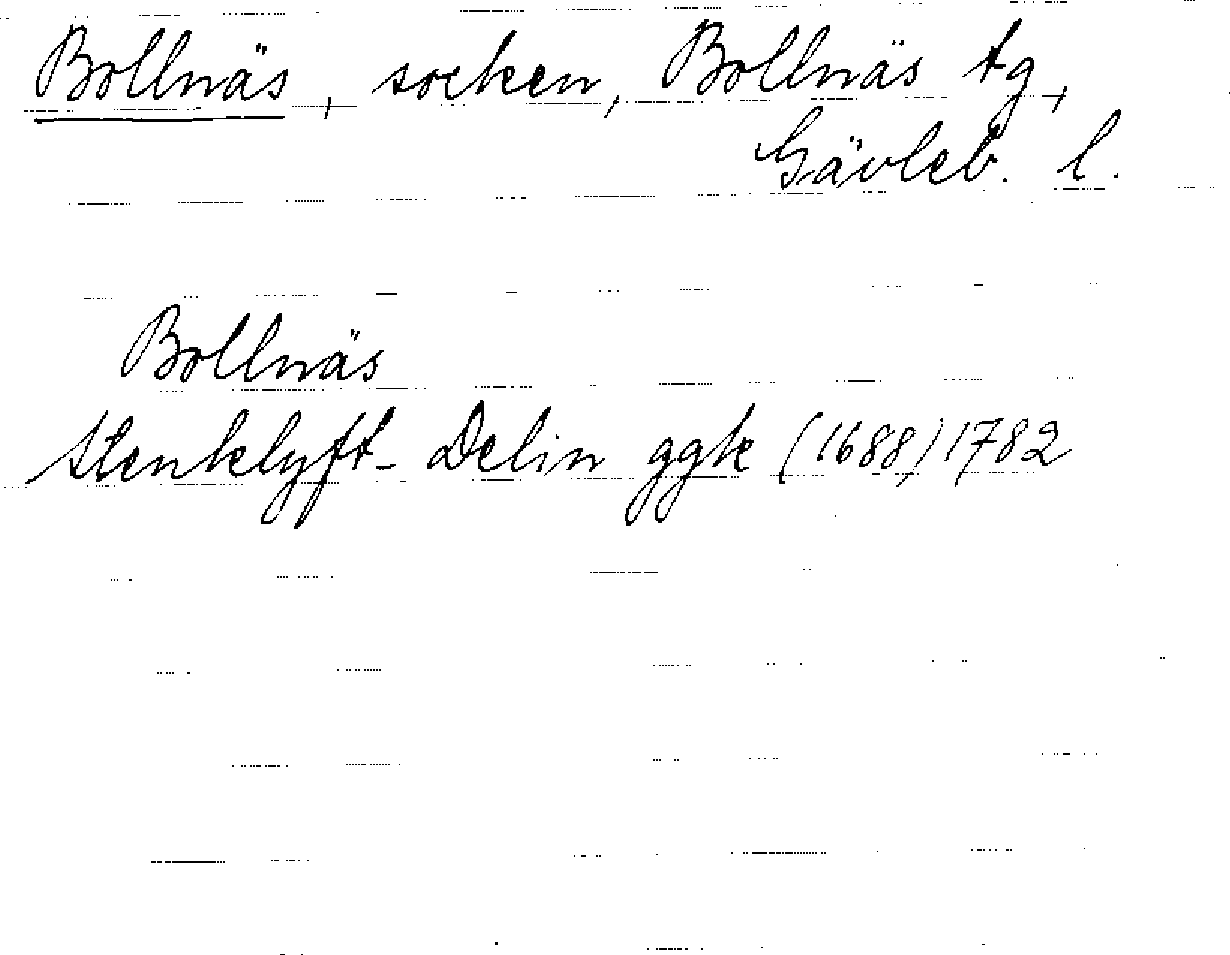 Bollnäs, socken, Bollnäs tg,
Gävleb. l.
Bollnäs
Stenklyft- Delin ggk (1688) 1782